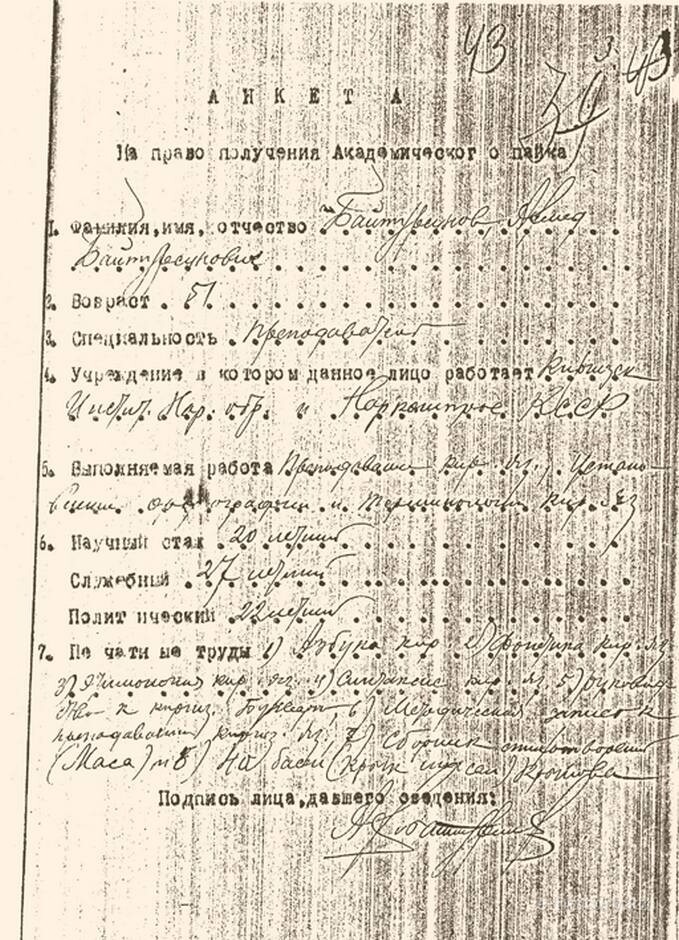 43
3
43
АНКЕТА
На право получения Академическог о пайка
1. Фамилия,имя, отчество Байтурсунов Ахмед
Байтурсунович
2. Возраст 51
3. Специальность Преподаватель
4. Учреждение в котором данное лицо работает Киргизск
Инстит. Нар. обр. и Наркомпрос КССР
5. Выполняемая работа Преподавание кир. яз., Устано-
вление орфографии и терминологии кир. яз
6. Научный стаж 20 летний
Служебный 27 летний
Полит ический 22 летний
7. Пе чати ые труды 1) Азбука кир 2) Фонетика кир. яз
3) Этимология кир. яз. 4) Синтаксис кир. яз 5) Руковод-
ство к киргиз. Букварю 6) Методическая записка
преподавания киргиз. яз. 7) Сборник стихотворений
(Маса) 8) 40 басен Крылова
Подпись лица,давшего сведения: